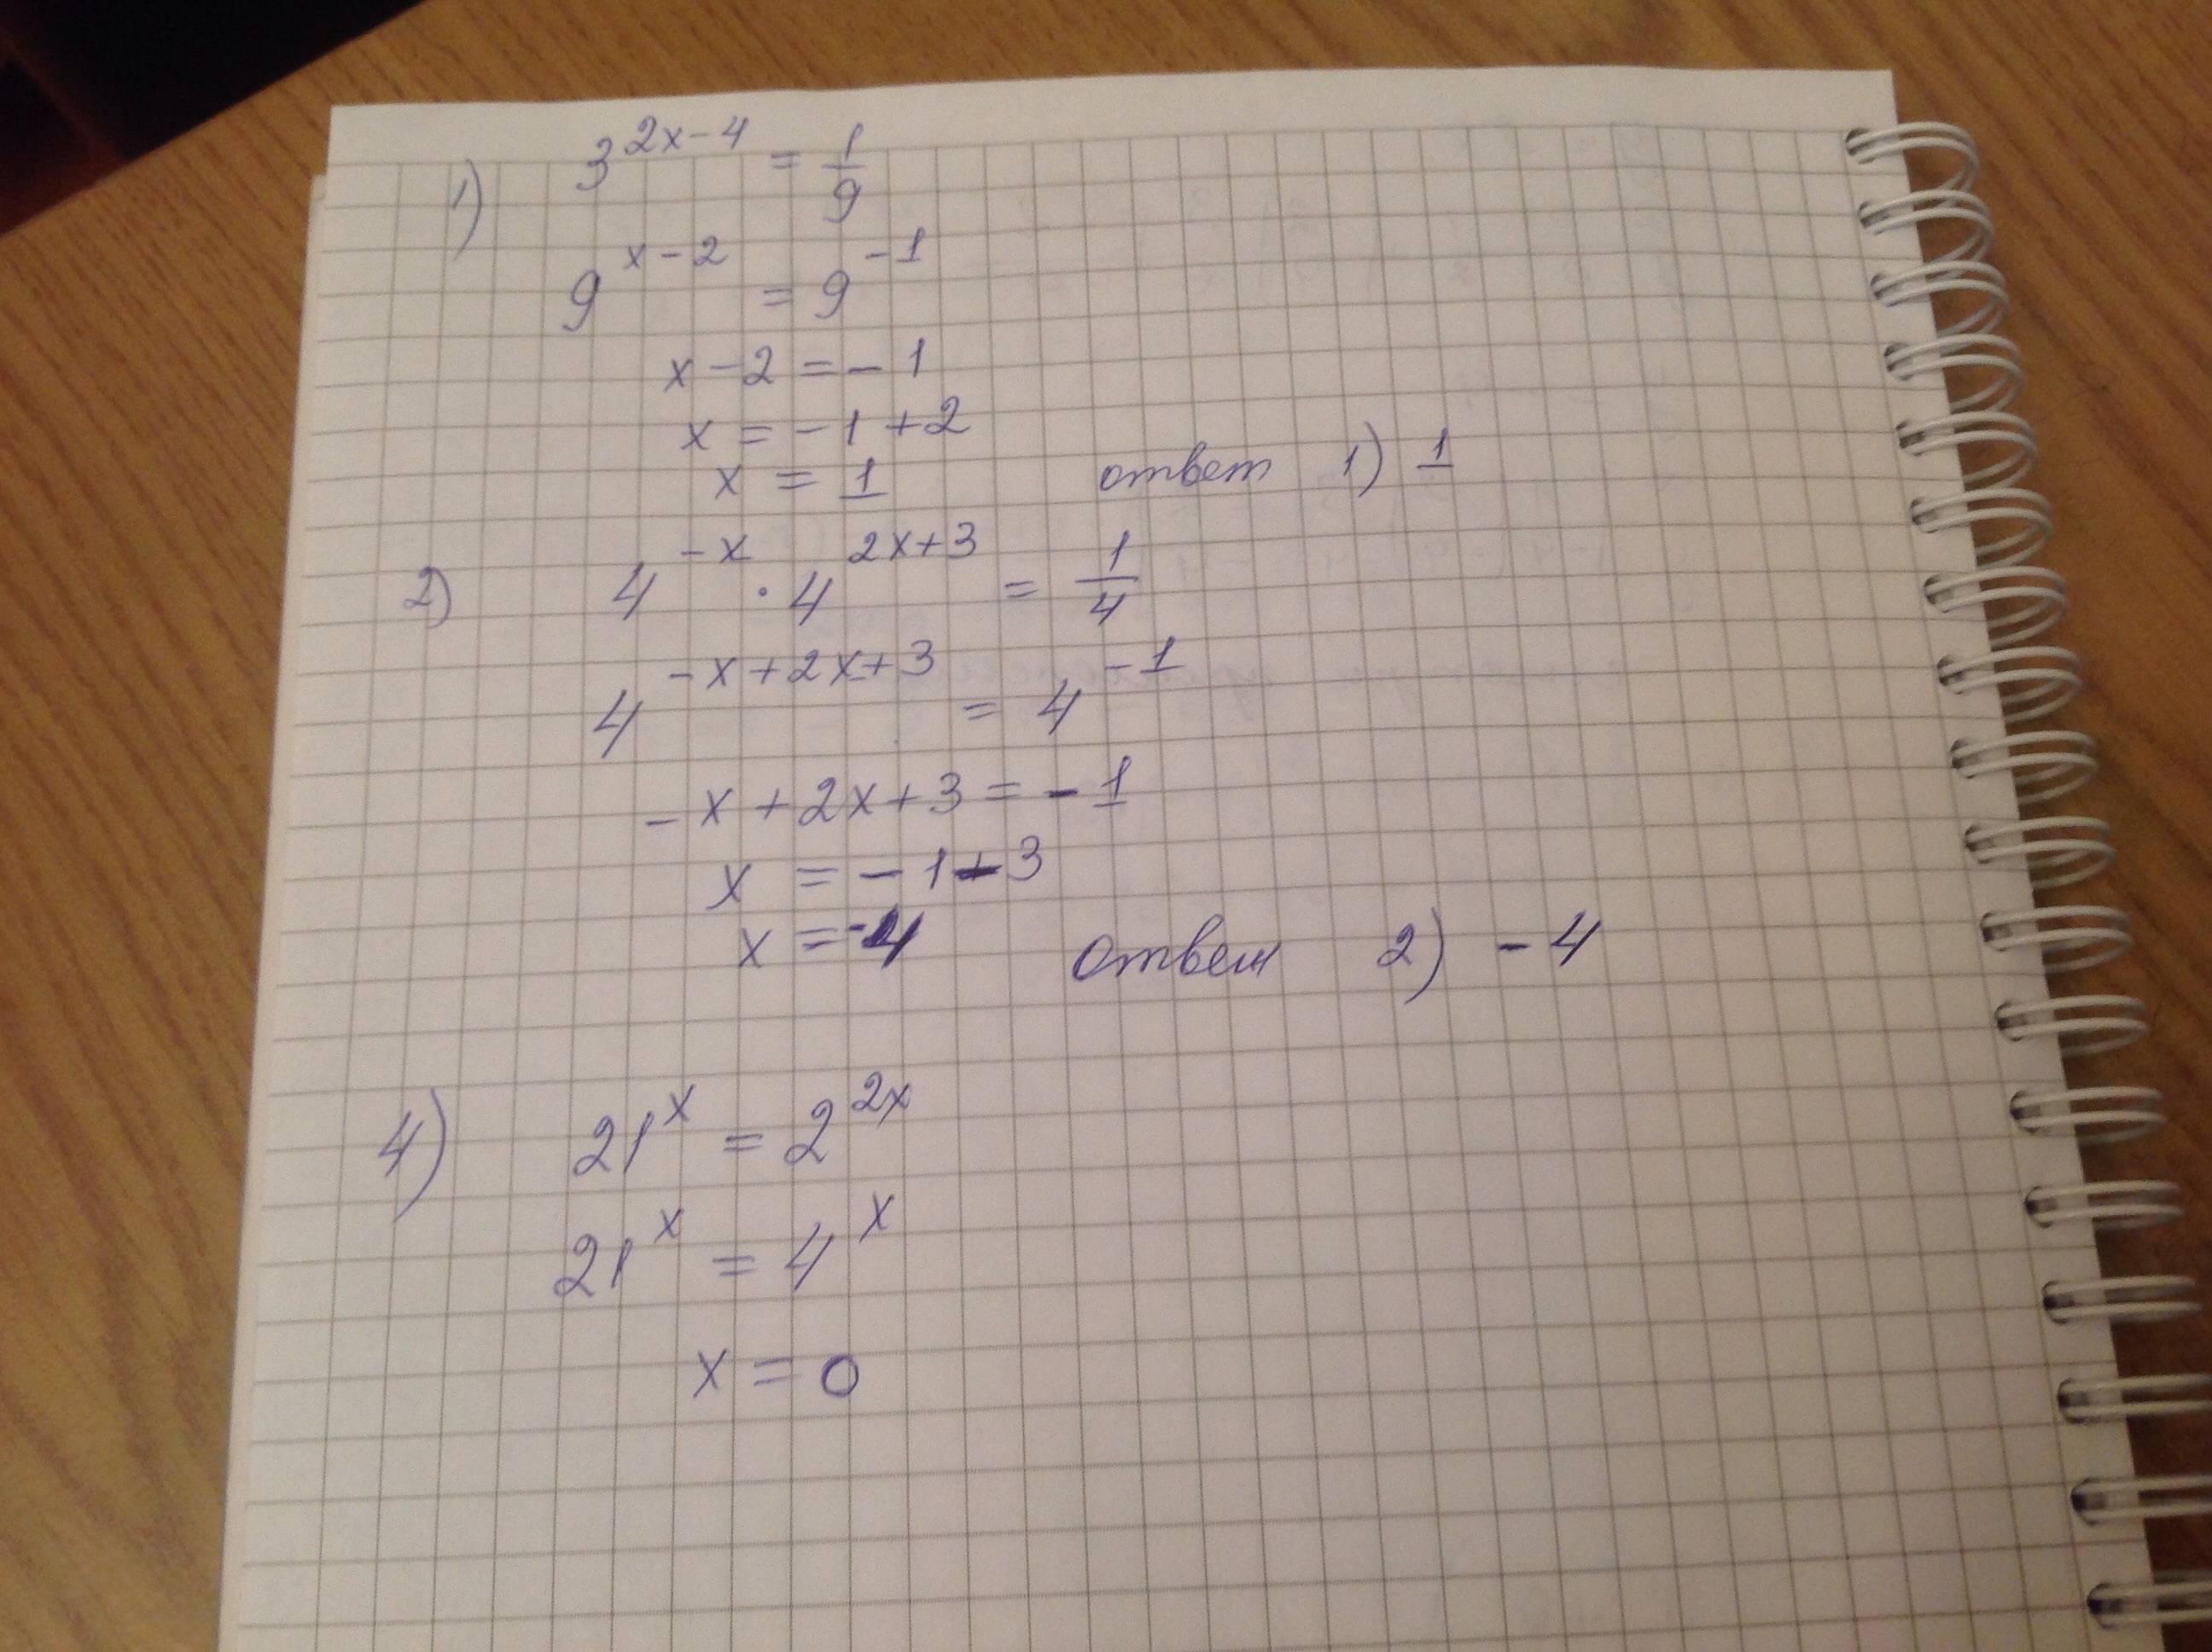 1) 3^{2x-4} = \frac{1}{9}
9^{x-2} = 9^{-1}
x-2 = -1
x = -1+2
x = 1 ответ 1) 1
2) 4^{-x} · 4^{2x+3} = \frac{1}{4}
4^{-x+2x+3} = 4^{-1}
-x+2x+3 = -1
x = -1-3
x = -4 Ответ 2) -4
4) 21^x = 2^{2x}
21^x = 4^x
x = 0